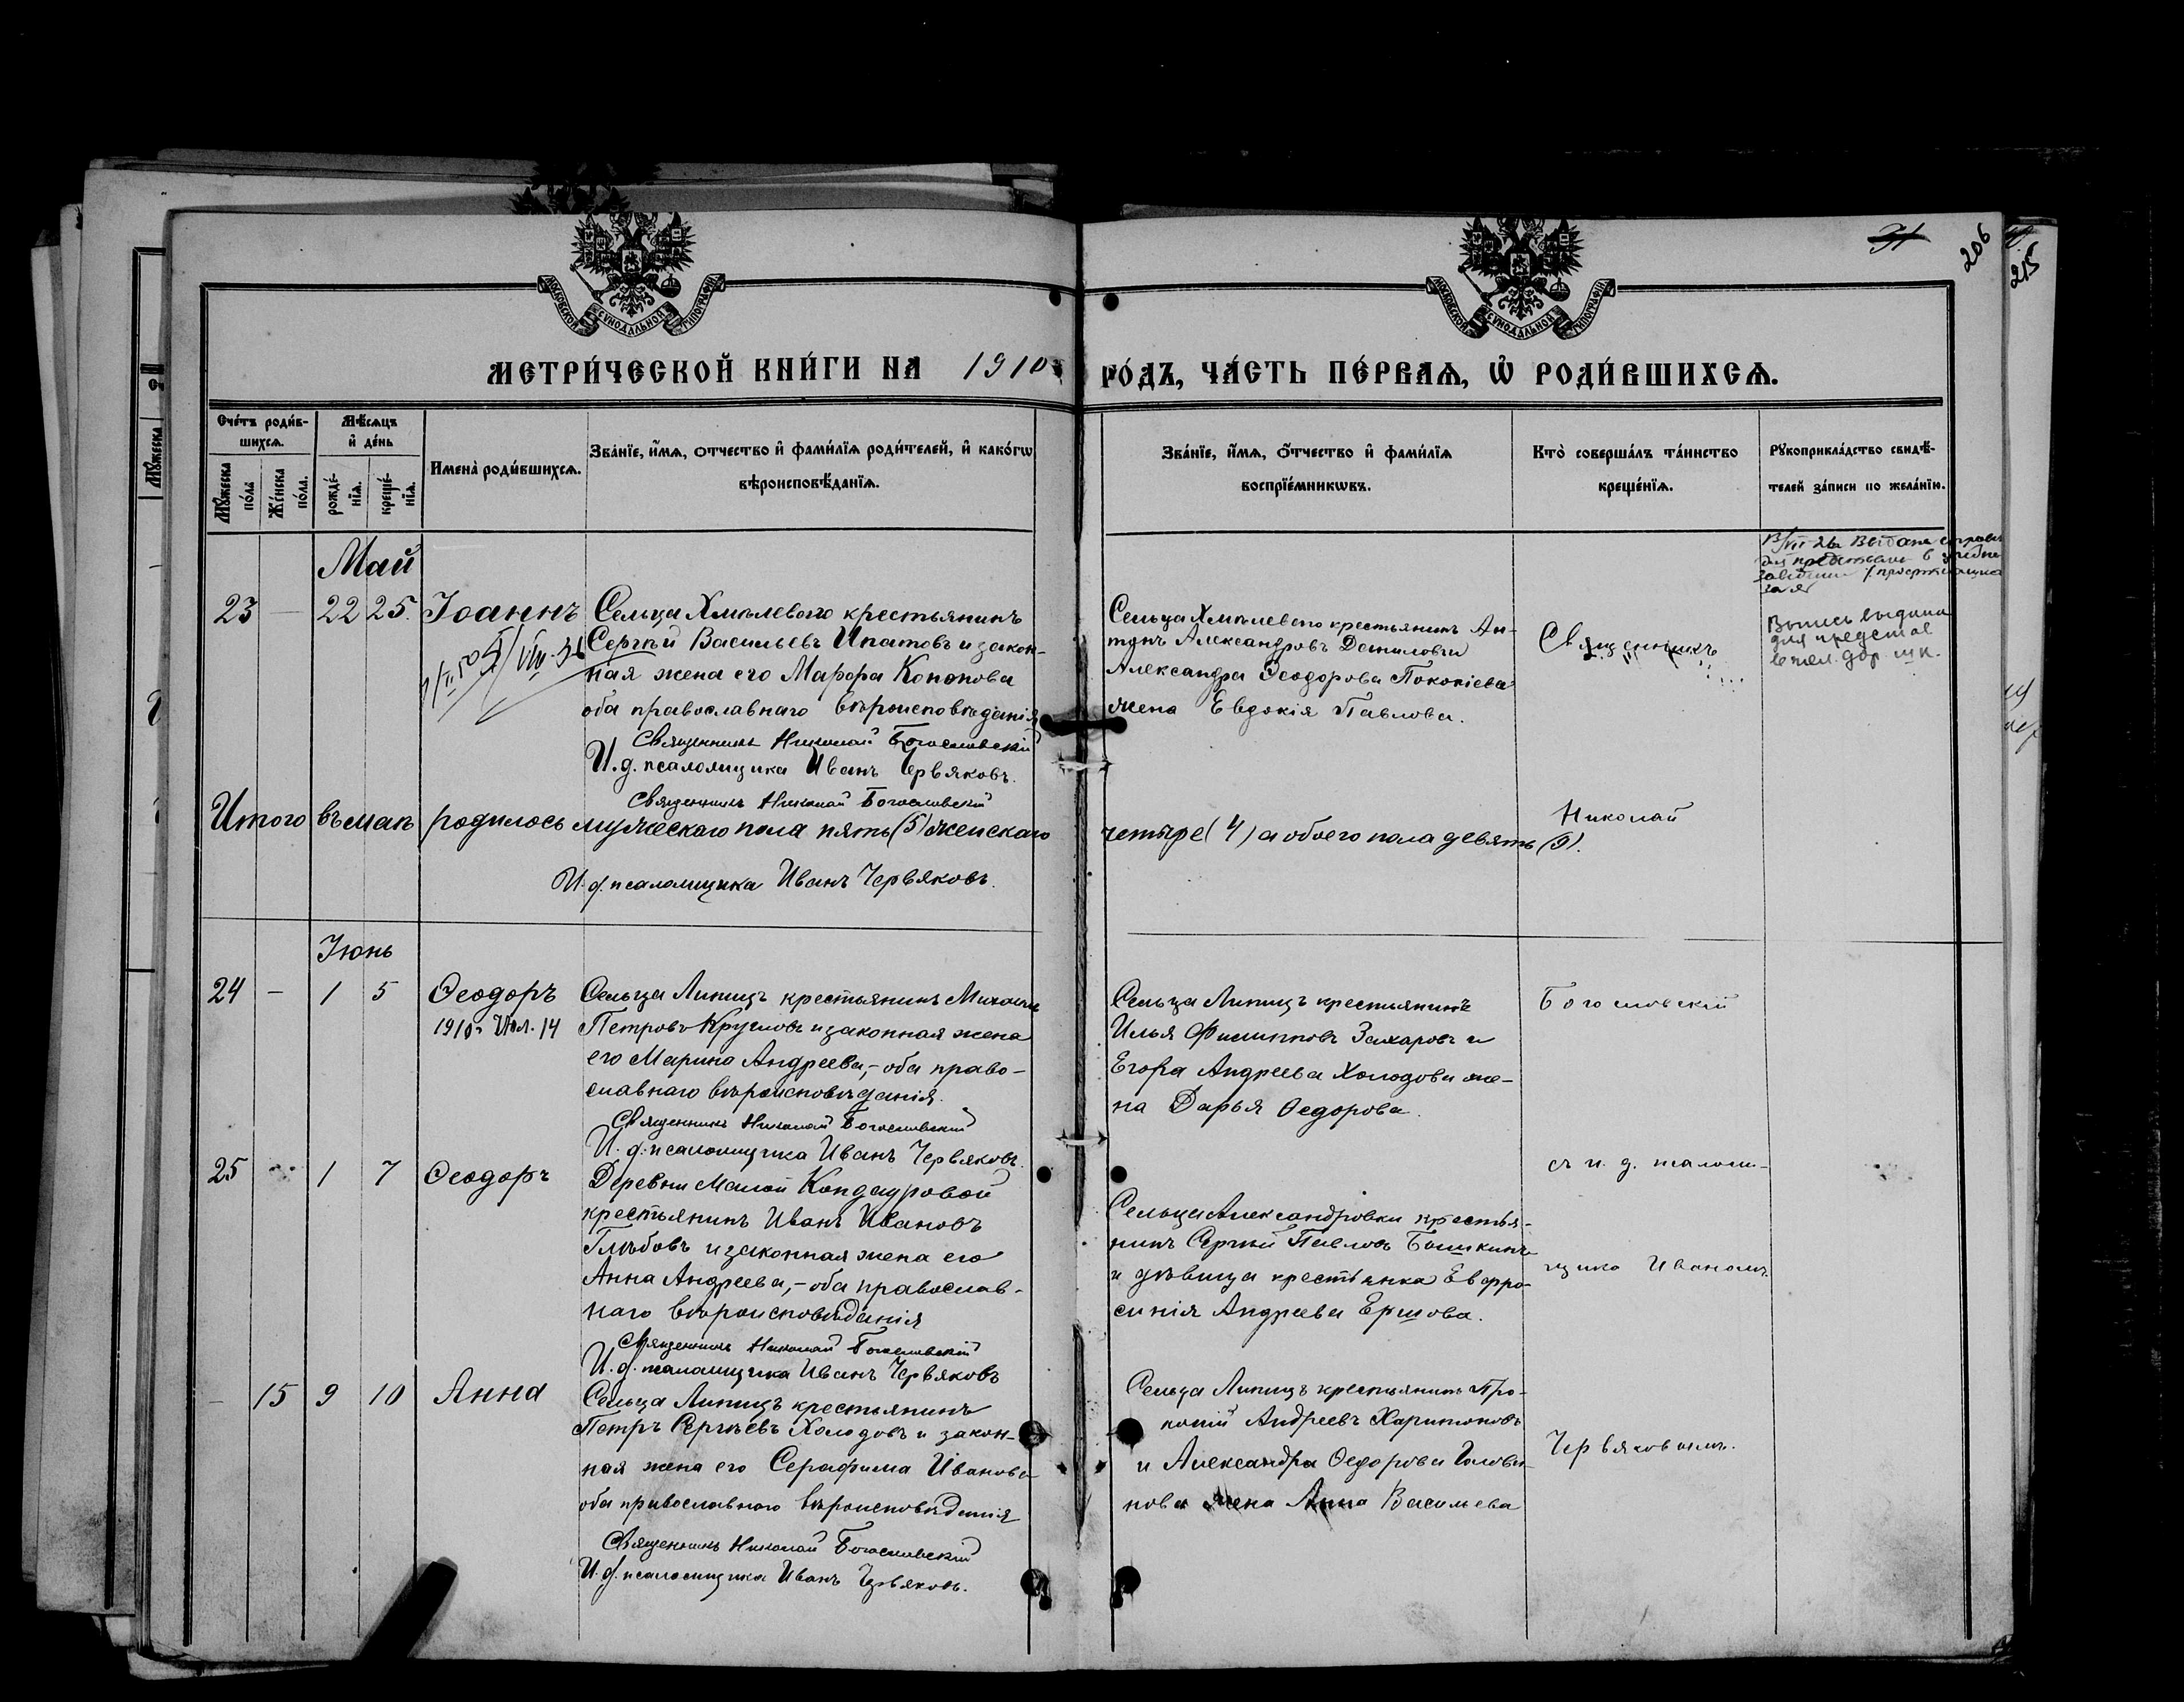 206
215
МОСКОВСКОЙ СУНОДАЛЬНОЙ ТИПОГРАФІИ
МОСКОВСКОЙ СУНОДАЛЬНОЙ ТИПОГРАФІИ
МЕТРИ́ЧЕСКОЙ КНИ́ГИ НА 1910 ГО́ДЪ, ЧА́СТЬ ПЕ́РВАѦ, Ѡ҆ РОДИ́ВШИХСѦ.
Счéтъ роди́в-
шихсѧ.
Мꙋжеска
по́ла
Же́нска
по́ла.
Мѣ́сѧцъ
и҆ де́нь
рожде́-
нїѧ.
креще́-
нїѧ.
Имена̀ роди́вшихсѧ.
Зва́нїе, и҆́мѧ, отчество и҆ фами́лїѧ роди́телей, и҆ како́гѡ
вѣроисповѣ́данїѧ.
Зва́нїе, и҆́мѧ, о҆́тчество и҆ фами́лїѧ
воспрїе́мникѡвъ.
Кто̀ соверша́лъ та́инство
креще́нїѧ.
Рꙋкоприкла́дство свидѣ́-
телей за́писи по жела́нїю.
Май
23 — 22 25. Іоаннъ
Сельца Хмѣлевого крестьянинъ
Сергѣй Васильевъ Ипатовъ и закон-
ная жена его Марфа Кононова
оба православнаго вѣроисповѣданія
Священникъ Николай Богословскій
И. д. псаломщика Иванъ Червяковъ.
Сельца Хмѣлевого крестьянинъ Ан-
тонъ Александровъ Даниловъ и
Александра Ѳеодорова
жена Евдокія Павлова.
Священникъ
Выпись выдана
для представ
Священникъ Николай Богословскій
Итого въ маѣ родилось мужескаго пола пять (5) женскаго четыре (4) а обоего пола девять (9).
Николай
И. д. псаломщика Иванъ Червяковъ.
Іюнь
24 — 1 5 Ѳеодоръ
1910 г. Іюл. 14
Сельца Липицъ крестьянинъ Михаилъ
Петровъ Кругловъ и законная жена
его Марина Андреева, – оба право-
славнаго вѣроисповѣданія.
Священникъ Николай Богословскій
И. д. псаломщика Иванъ Червяковъ.
Сельца Липицъ крестьянинъ
Илья Филипповъ Захаровъ и
Егора Андреева Холодова же-
на Дарья Ѳедорова.
Богословскій
25 — 1 7 Ѳеодоръ
Деревни Малой Кондауровой
крестьянинъ Иванъ Ивановъ
Глѣбовъ и законная жена его
Анна Андреева, – оба православ-
наго вѣроисповѣданія
Священникъ Николай Богословскій
И. д. псаломщика Иванъ Червяковъ
Сельца Александровки крестья-
нинъ Сергѣй Павловъ Башкинъ
и дѣвица крестьянка Евфро-
синія Андреева Ершова.
съ и. д. псалом-
щика Иваномъ
— 15 9 10 Анна
Сельца Липицъ крестьянинъ
Петръ Сергѣевъ Холодовъ и закон-
ная жена его Серафима Иванова
оба православнаго вѣроисповѣданія
Священникъ Николай Богословскій
И. д. псаломщика Иванъ Червяковъ.
Сельца Липицъ крестьянинъ Про-
копій Андреевъ Харитоновъ
и Александра Ѳедорова Голова-
нова жена Анна Васильева
Червяковымъ.